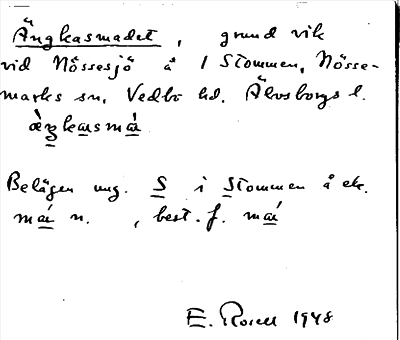 Ängkasmadet, grund vik
vid Nössesjö å 1 Stommen, Nösse-
marks sn, Vedbo hd. Älvsborgs l.
Belägen ung. S i Stommen å ek.
n. , best. f.
E. Rosell 1948